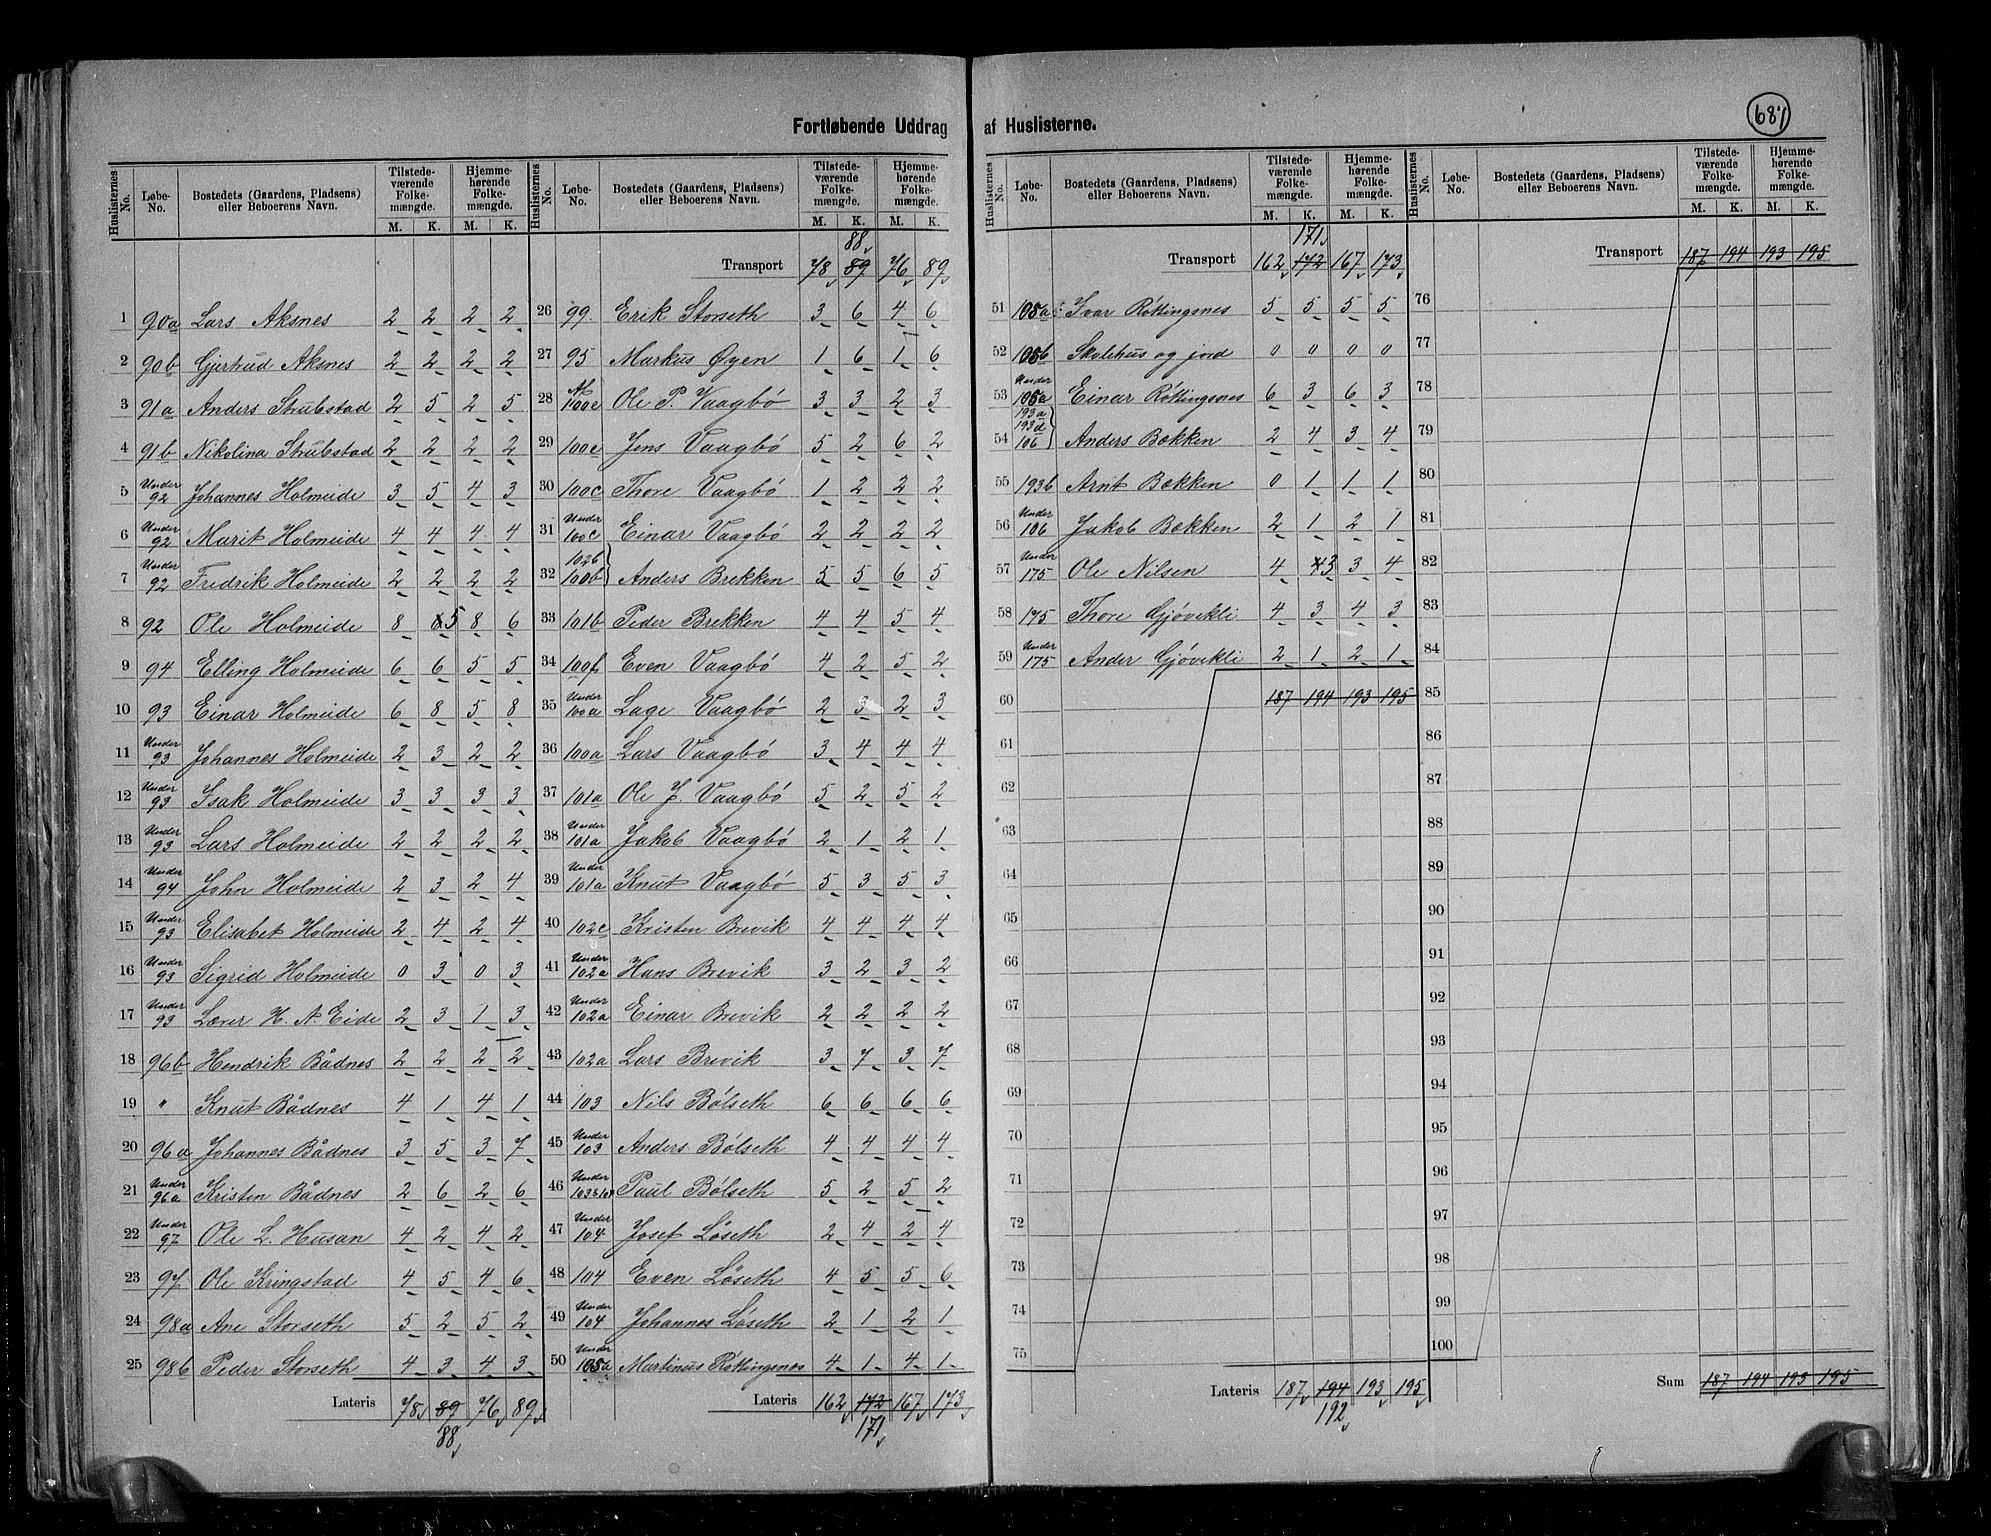 Fortløbende Uddrag af Huslisterne.
681
Huslisternes No. Løbe-No. Bostedets (Gaardens, Pladsens) eller Beboerens Navn. Tilstedeværende Folkemængde. M. K. Hjemmehørende Folkemængde. M. K.
1 90a Lars Aksnes 2 2 2 2
2 90b Gjertrud Aksnes 2 2 2 2
3 91a Anders Strubstad 2 5 2 5
4 91b Nikolina Strubstad 2 2 2 2
5 Under 92 Johannes Holmeide 3 5 4 3
6 Under 92 Marit Holmeide 4 4 4 4
7 Under 92 Fredrik Holmeide 2 2 2 2
8 92 Ole Holmeide 8 5 8 6
9 94 Elling Holmeide 6 6 5 5
10 93 Einar Holmeide 6 8 5 8
11 Under 93 Johannes Holmeide 2 3 2 2
12 Under 93 Isak Holmeide 3 3 3 3
13 Under 93 Lars Holmeide 2 2 2 2
14 Under 94 John Holmeide 2 3 2 4
15 Under 93 Elisabet Holmeide 2 4 2 4
16 Under 93 Sigrid Holmeide 0 3 0 3
17 Under 93 Lærer H. A. Eide 2 3 1 3
18 96b Hendrik Bådnes 2 2 2 2
19 " Knut Bådnes 4 1 4 1
20 96a Johannes Bådnes 3 5 3 7
21 Under 96a Kristen Bådnes 2 6 2 6
22 Under 97 Ole L. Husan 4 2 4 2
23 97 Ole Kringstad 4 5 4 6
24 98a Ane Storseth 5 2 5 2
25 98b Peder Storseth 4 3 4 3
Lateris 78 89 76 89
88
Huslisternes No. Løbe-No. Bostedets (Gaardens, Pladsens) eller Beboerens Navn. Tilstedeværende Folkemængde. M. K. Hjemmehørende Folkemængde. M. K.
88
Transport 78 89 76 89
26 99. Erik Storseth 3 6 4 6
27 95 Markus Øyen 1 6 1 6
28 100e Ole P. Vaagbö 3 3 2 3
29 100e Jens Vaagbö 5 2 6 2
30 100c Thore Vaagbö 1 2 2 2
31 Under 100c Einar Vaagbö 2 2 2 2
32 102b 100b Anders Brekken 5 5 6 5
33 101b Peder Brekken 4 4 5 4
34 100f Even Vaagbö 4 2 5 2
35 Under 100a Lage Vaagbö 2 3 2 3
36 100a Lars Vaagbö 3 4 4 4
37 101a Ole J. Vaagbö 5 2 5 2
38 Under 101a Jakob Vaagbö 2 1 2 1
39 Under 101a Knut Vaagbö 5 3 5 3
40 102c Kristen Brevik 4 4 4 4
41 Under 102a Hans Brevik 3 2 3 2
42 Under 102a Einar Brevik 2 2 2 2
43 102a Lars Brevik 3 7 3 7
44 103 Nils Bölseth 6 6 6 6
45 Under 103 Anders Bölseth 4 4 4 4
46 Under Paul Bölseth 5 2 5 2
47 Under 104 Josef Löseth 2 4 2 4
48 104 Even Löseth 4 5 5 6
49 Under 104 Johannes Löseth 2 1 2 1
50 Under 105a Martinus Röttingsnes 4 1 4 1
Lateris 162 172 167 173
171
Huslisternes No. Løbe-No. Bostedets (Gaardens, Pladsens) eller Beboerens Navn. Tilstedeværende Folkemængde. M. K. Hjemmehørende Folkemængde. M. K.
171
Transport 162 172 167 173
51 105a Ivar Röttingsnes 5 5 5 5
52 105b Skolehus og jord 0 0 0 0
53 Under 105a Einar Röttingsnes 6 3 6 3
54 193a 193d 106 Anders Bækken 2 4 3 4
55 193b Arnt Bækken 0 1 1 1
56 Under 106 Jakob Bækken 2 1 2 1
57 Under 175 Ole Nilsen 4 4 3 3 4
58 175 Thore Gjövikli 4 3 4 3
59 Under 175 Ander Gjövikli 2 1 2 1
60 187 194 193 195
61
62
63
64
65
66
67
68
69
70
71
72
73
74
75
Lateris 187 194 193 195
192
Huslisternes No. Løbe-No. Bostedets (Gaardens, Pladsens) eller Beboerens Navn. Tilstedeværende Folkemængde. M. K. Hjemmehørende Folkemængde. M. K.
Transport 187 194 193 195
76
77
78
79
80
81
82
83
84
85
86
87
88
89
90
91
92
93
94
95
96
97
98
99
100
Sum 187 194 193 195